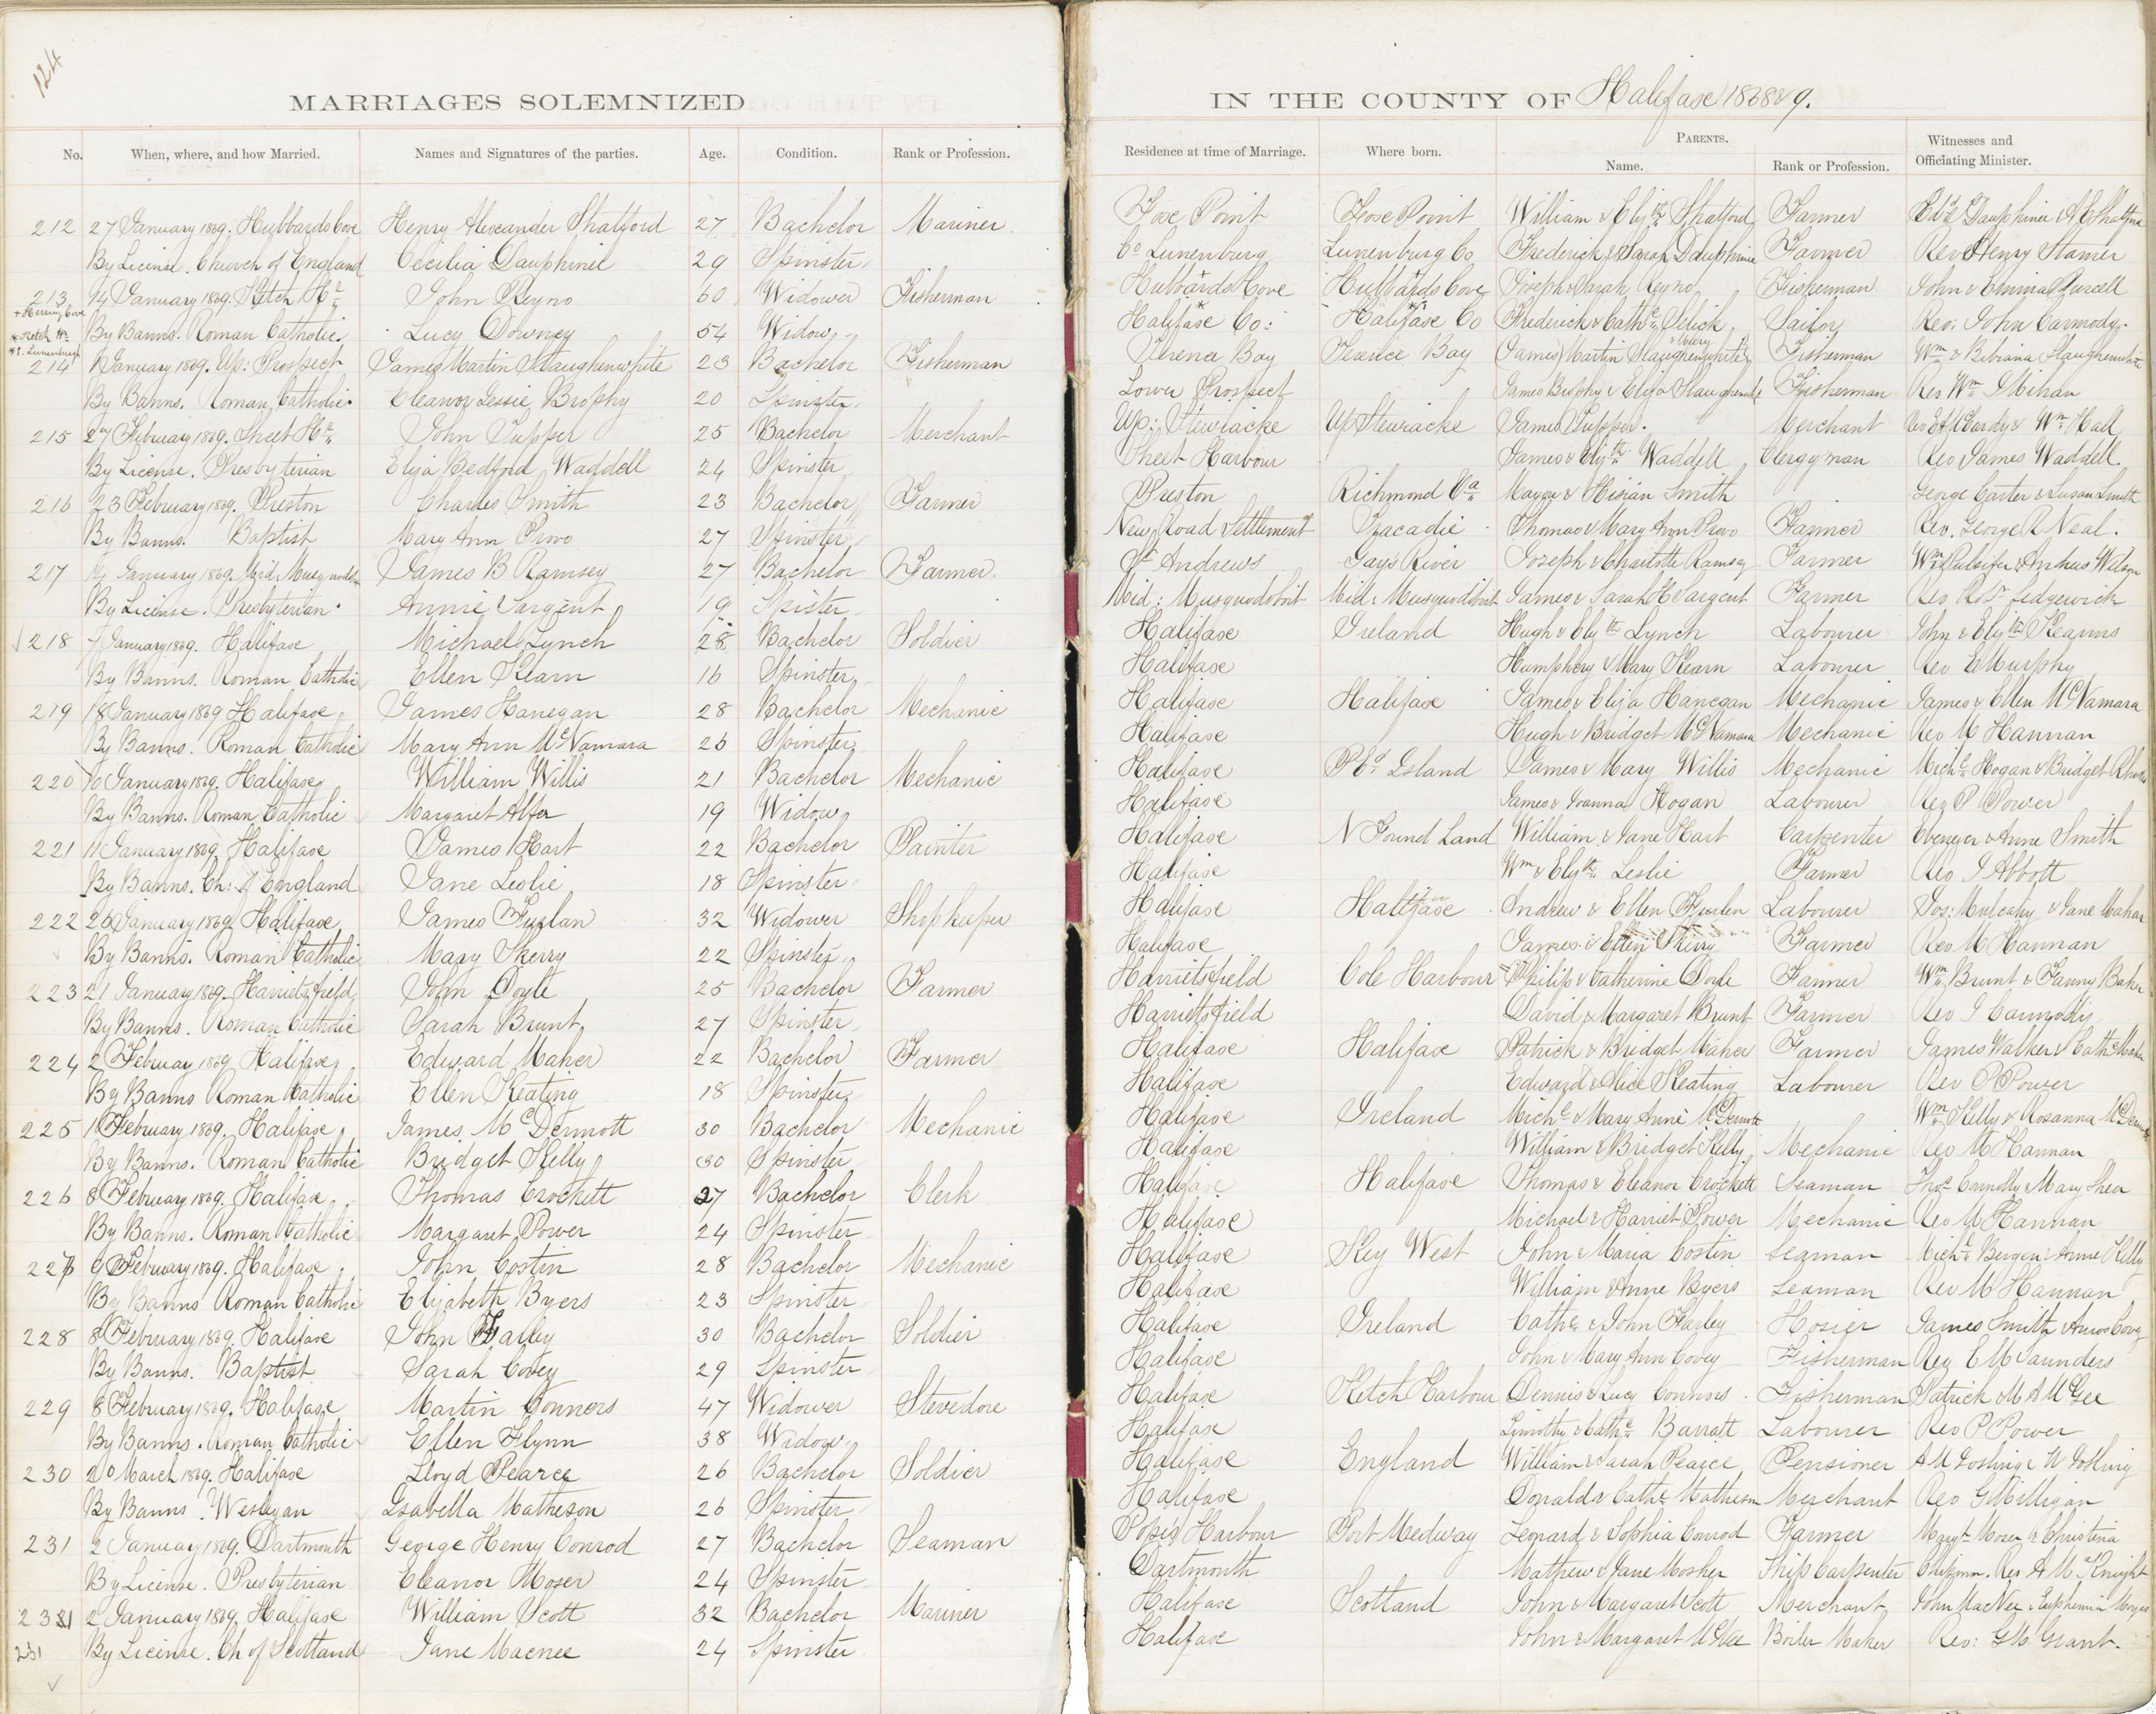 124
MARRIAGES SOLEMNIZED
No. When, where, and how Married. Names and Signatures of the parties. Age. Condition. Rank or Profession.
212 27 January 1869. Hubbards Cove Henry Alexander Shatford 27 Bachelor Mariner
By License. Church of England Cecilia Dauphinie 29 Spinster
213 14 January 1869. Ketch Hr John Reyno 60 Widower Fisherman
+ Herring Cove
By Banns. Roman Catholic Lucy Downey 54 Widow
x Ketch Hr
Lunenburg
214 January 1869. Up: Prospect James Martin Slaughenwhite 23 Bachelor Fisherman
By Banns. Roman Catholic Eleanor Jessie Brophy 20 Spinster
215 February 1869. Sheet Hr John Tupper 25 Bachelor Merchant
By License. Presbyterian Eliza Bedford Waddell 24 Spinster
216 23 February 1869. Preston Charles Smith 23 Bachelor Farmer
By Banns. Baptist Mary Ann Provo 27 Spinster
217 January 1869. Mid. James B Ramsey 27 Bachelor Farmer
By License. Presbyterian Annie Sargent 19 Spister
218 7 January 1869. Halifax Michael Lynch 28 Bachelor Soldier
By Banns. Roman Catholic Ellen Kearn 16 Spinster
219 18 January 1869 Halifax James Hanegan 28 Bachelor Mechanic
By Banns. Roman Catholic Mary Ann McNamara 26 Spinster
220 10 January 1869. Halifax William Willis 21 Bachelor Mechanic
By Banns. Roman Catholic Margaret Alfer 19 Widow
221 11 January 1869 Halifax James Hart 22 Bachelor Painter
By Banns. Ch: of England Jane Leslie 18 Spinster
222 26 January 1869 Halifax James Furlan 32 Widower Shopkeeper
By Banns. Roman Catholic Mary Skerry 22 Spinster
223 21 January 1869. Harrietsfield John Doyle 25 Bachelor Farmer
By Banns. Roman Catholic Sarah Brunt 27 Spinster
224 2 Februay 1869 Halifax Edward Maher 22 Bachelor Farmer
By Banns Roman Catholic Ellen Keating 18 Spinster
225 1 February 1869. Halifax James McDermott 30 Bachelor Mechanic
By Banns. Roman Catholic Bridget Kelly 30 Spinster
226 8 February 1869. Halifax Thomas Crockett 27 Bachelor Clerk
By Banns. Roman Catholic Margaret Power 24 Spinster
227 9 February 1869. Halifax John Costin 28 Bachelor Mechanic
By Banns Roman Catholic Elizabeth Byers 23 Spinster
228 8 February 1869. Halifax John Farley 30 Bachelor Soldier
By Banns. Baptist Sarah Covey 29 Spinster
229 8 February 1869. Halifax Martin Connors 47 Widower Stevedore
By Banns. Roman Catholic Ellen Flynn 38 Widow
230 20 March 1869. Halifax Lloyd Pearce 26 Bachelor Soldier
By Banns. Wesleyan Isabella Matheson 26 Spinster
231 2 January 1869. Dartmouth George Henry Conrod 27 Bachelor Seaman
By License. Presbyterian Eleanor Moser 24 Spinster
2 January 1869. Halifax William Scott 32 Bachelor Mariner
231 By License. Ch of Scotland Jane Macnee 24 Spinster
IN THE COUNTY OF Halifax 1868 & 9.
Residence at time of Marriage. Where born. PARENTS. Name. Rank or Profession. Witnesses and Officiating Minister.
Foxe Point Foxe Point William & Elizth Shatford Farmer Dauphinie &
Co Lunenburg Lunenburg Co Frederick & Sarah Dauphinie Farmer Rev Henry Stamer
Hubbards Cove Hubbards Cove Joseph & Sarah Reyno Fisherman John & Emma Purcell
Halifax Co: Halifax Co Frederick & Cathe Sailor Rev: John Carmody
Terence Bay Terence Bay James Martin & Mary Slaughenwhite Fisherman Wm & Bibiana Slaughenwhite
Lower Prospect James Brophy & Eliza Fisherman Rev Wm
Up: Stewiacke Up Stewiacke James Tupper. Merchant & Wm Hall
Sheet Harbour James & Elizth Waddell Clergyman Rev James Waddell.
Preston Richmond Va Smith George Carter & Susan Smith
New Road Settlement Tracadie Thomas & Mary Ann Provo Farmer Rev. George R Neal.
St Andrews Gays River Joseph & Charlotte Ramsey Farmer Wm Pulsifer & Wilson
Mid: Musquodoboit Mid: Musquodoboit James & Sarah H Sargent Farmer Rev Robt Sedgewick
Halifax Ireland Hugh & Elizth Lynch Labourer John & Elizth Kearns
Halifax Humphery & Mary Kearn Labourer Rev E Murphy
Halifax Halifax James & Eliza Hanegan Mechanic James & Ellen McNamara
Halifax Hugh & Bridget McNamara Mechanic Rev M Hannan
Halifax P Ed Island James & Mary Willis Mechanic Michl Hogan & Bridget
Halifax James & Joanna Hogan Labourer Rev P Power
Halifax N Found Land William & Jane Hart Carpenter Ebenezer & Anne Smith
Halifax Wm & Elizth Leslie Farmer Rev J Abbott
Halifax Halifax Andrew & Ellen Furlen Labourer Jos: Mulcahy & Jane Mahar
Halifax James & Ellen Skerry Farmer Rev M Hannan
Harrietsfield Cole Harbour Philip & Catherine Doyle Farmer Wm Brunt & Fanny Baker
Harrietsfield David & Margaret Brunt Farmer Rev J Carmody
Halifax Halifax Patrick & Bridget Maher Farmer James Walker & Cathe
Halifax Edward & Alice Keating Labourer Rev P Power
Halifax Ireland Michl & Mary Anne McDermott Wm Kelly & Rosanna McDermott
Halifax William & Bridget Kelly Mechanic Rev M Hannan
Halifax Halifax Thomas & Eleanor Crockett Seaman Thos Connolly & Mary Shea
Halifax Michael & Harriet Power Mechanic Rev M Hannan
Halifax Key West John & Maria Costin Seaman Michl Bergen & Anne Kelly
Halifax William & Anne Byers Seaman Rev M Hannan
Halifax Ireland Cathe & John Farley Hosier James Smith & Amos Covey
Halifax John & Mary Ann Covey Fisherman Rev E M Saunders
Halifax Ketch Harbour Dennis & Lucy Connors Fisherman Patrick & M A McGee
Halifax Timothy & Cathe Barratt Labourer Rev P Power
Halifax England William & Sarah Pearce Pensioner A M Gosling &
Halifax Donald & Cathe Matheson Merchant Rev G Milligan
Pope's Harbour Port Medway Leonard & Sophia Conrod Farmer Margt Moser & Christina
Dartmouth Mathew & Jane Mosher Ship Carpenter Rev A McKnight
Halifax Scotland John & Margaret Scott Merchant John MacNee & Euphemia
Halifax John & Margaret McNee Boiler Maker Rev: G M Grant.